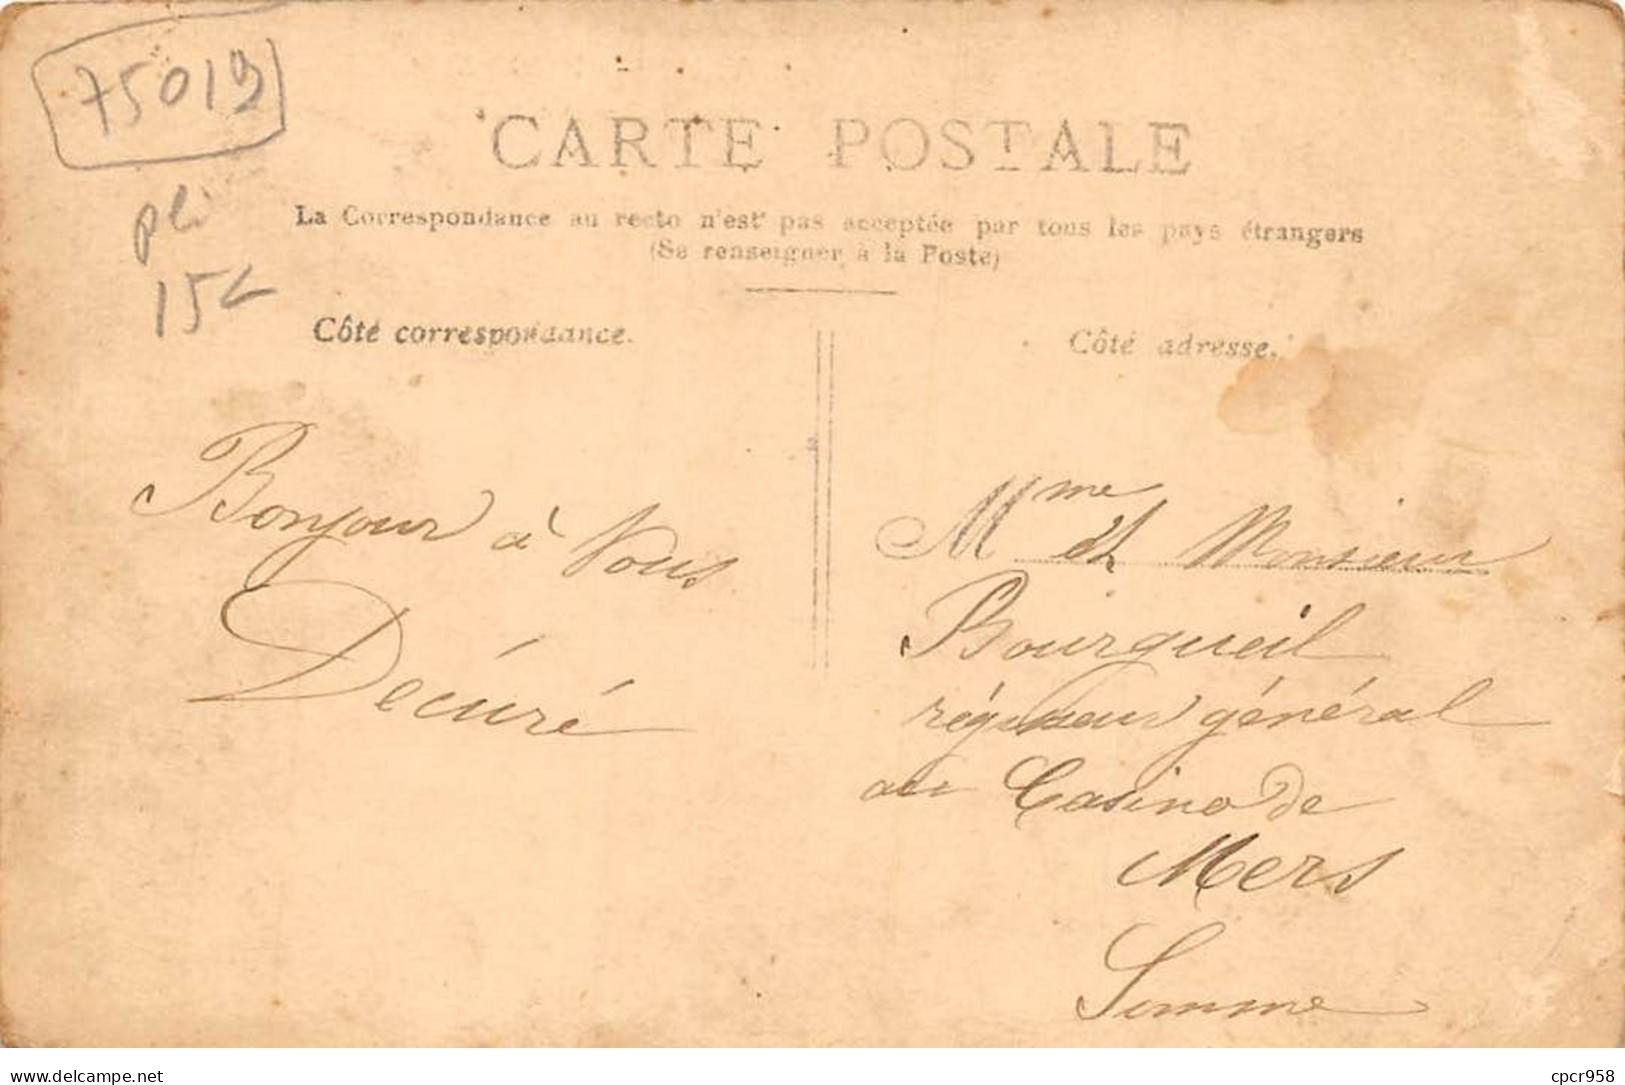 75019
pli
15€
CARTE POSTALE
La Correspondance au recto n'est pas acceptée par tous les pays étrangers
(Se renseigner à la Poste)
Côté correspondance.
Côté adresse.
Bonjour à Vous
Decuré
Mme et Monsieur
Bourgueil
régisseur général
au Casino de
Mers
Somme
delcampe.net
cpcr958